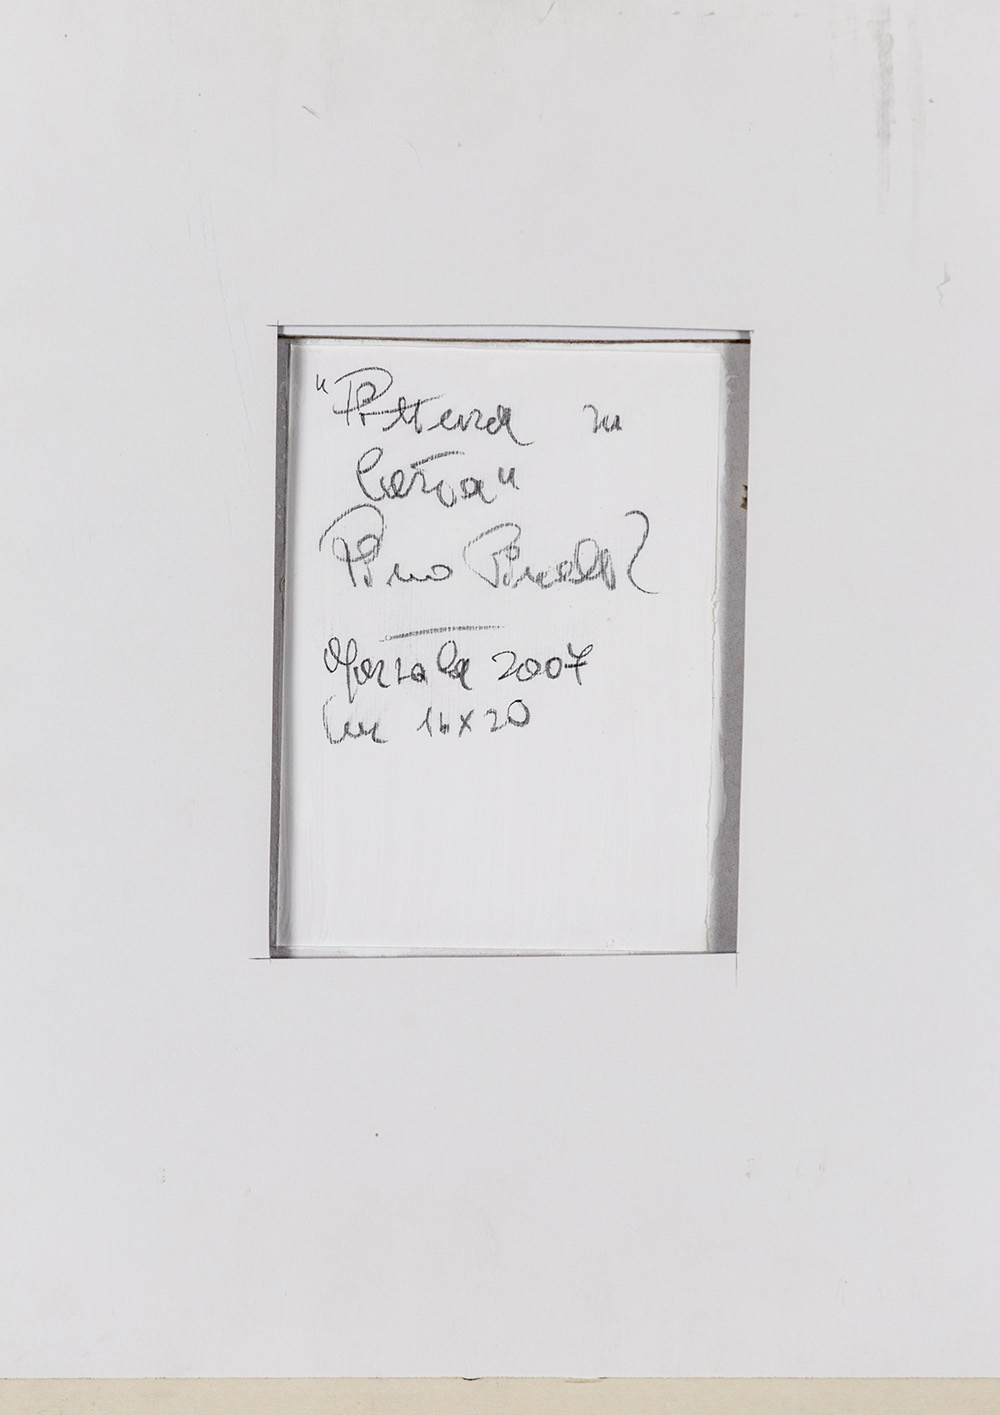 "Pittura su
Carta"
Pino Pinelli
Marsala 2007
cm 16x20